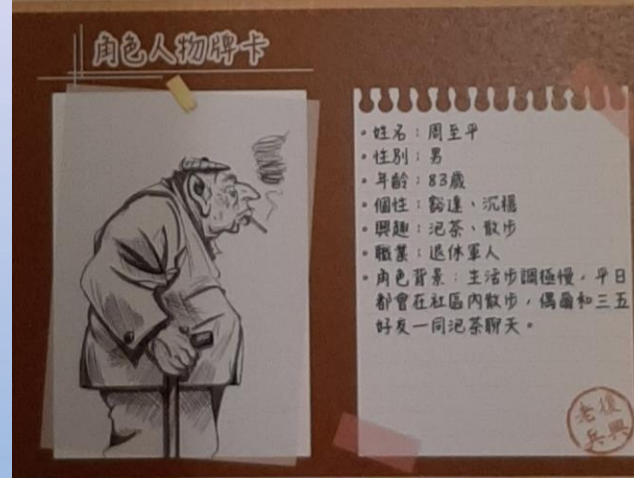 角色人物牌卡
• 姓名：周至平
• 性別：男
• 年齡：83歲
• 個性：豁達、沉穩
• 興趣：泡茶、散步
• 職業：退休軍人
• 角色背景：生活步調極慢，平日
都會在社區內散步，偶爾和三五
好友一同泡茶聊天。
老復
兵興